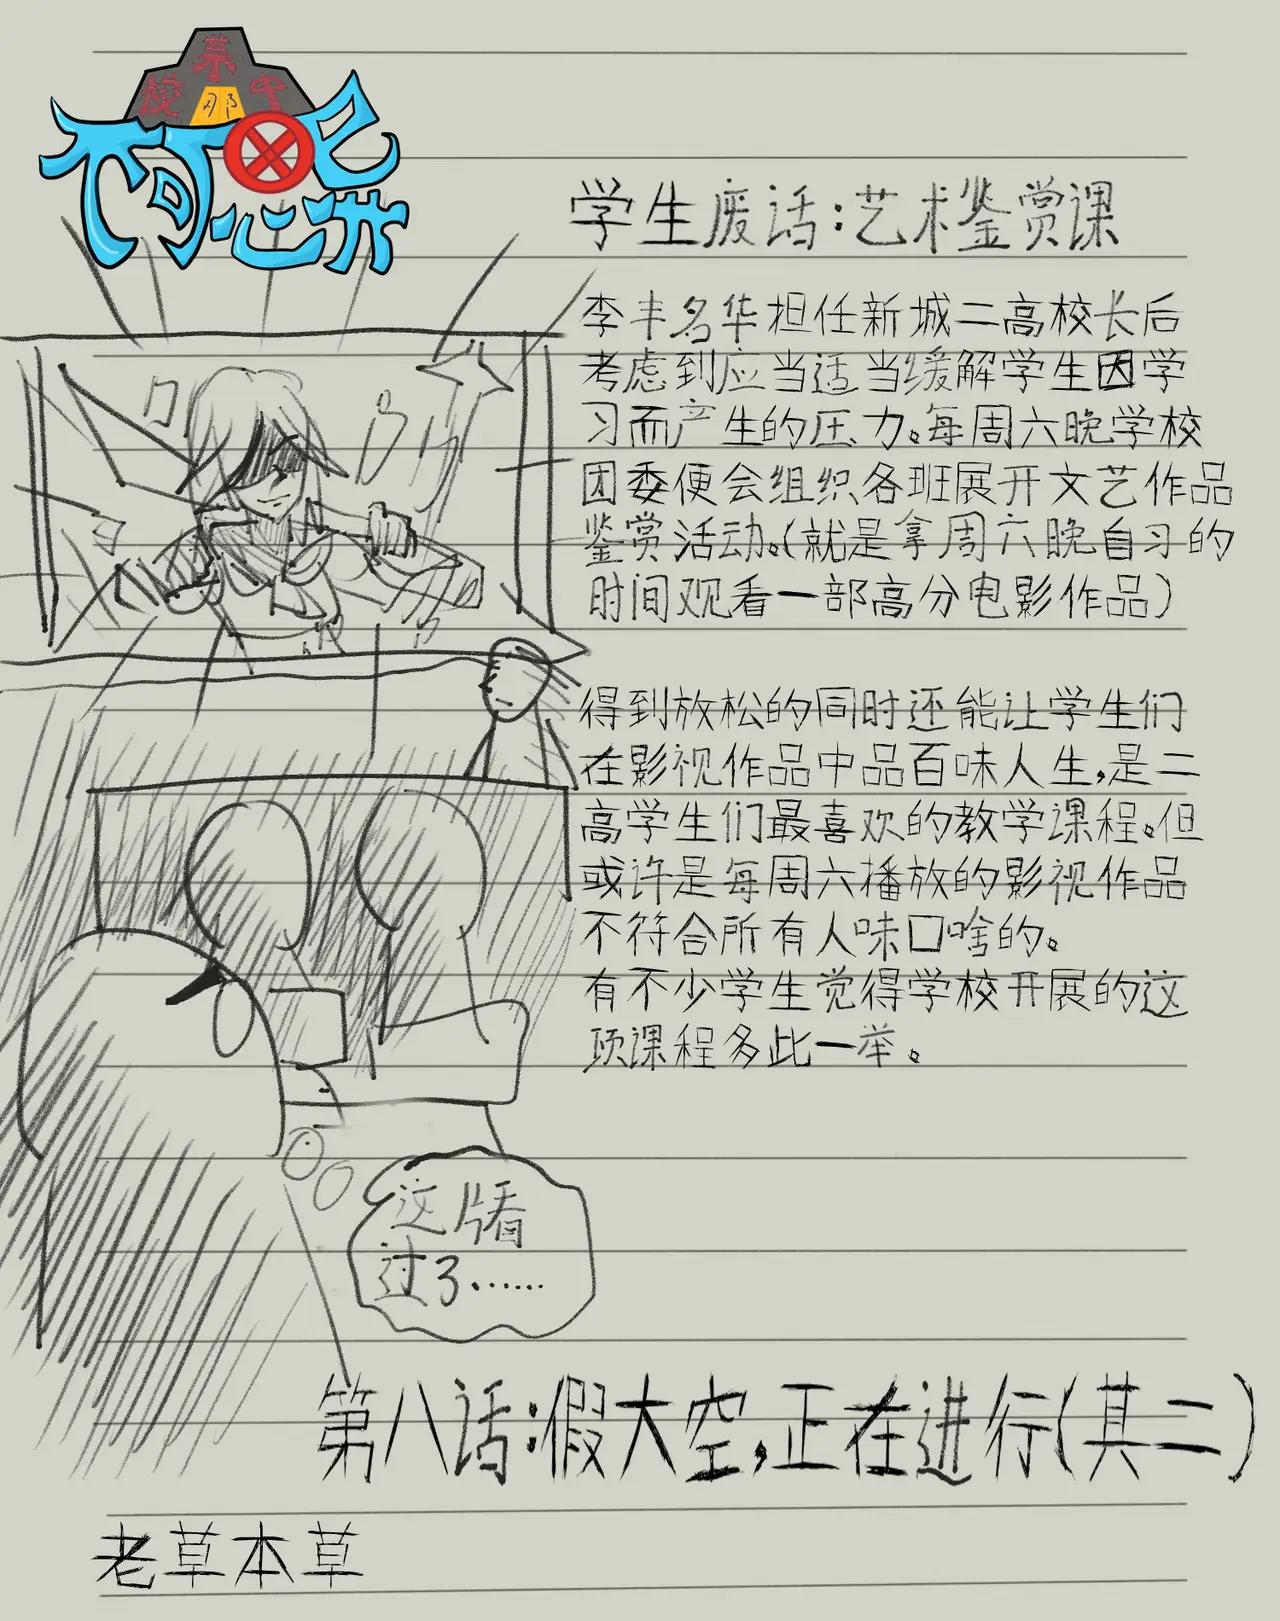 学生废话:艺术鉴赏课
李丰名华担任新城二高校长后
考虑到应当适当缓解学生因学
习而产生的压力。每周六晚学校
团委便会组织各班展开文艺作品
鉴赏活动。(就是拿周六晚自习的
时间观看一部高分电影作品)
得到放松的同时还能让学生们
在影视作品中品百味人生,是二
高学生们最喜欢的教学课程。但
或许是每周六播放的影视作品
不符合所有人味口啥的。
有不少学生觉得学校开展的这
项课程多此一举。
这片看
过了……
第八话:假大空,正在进行(其二)
老草本草